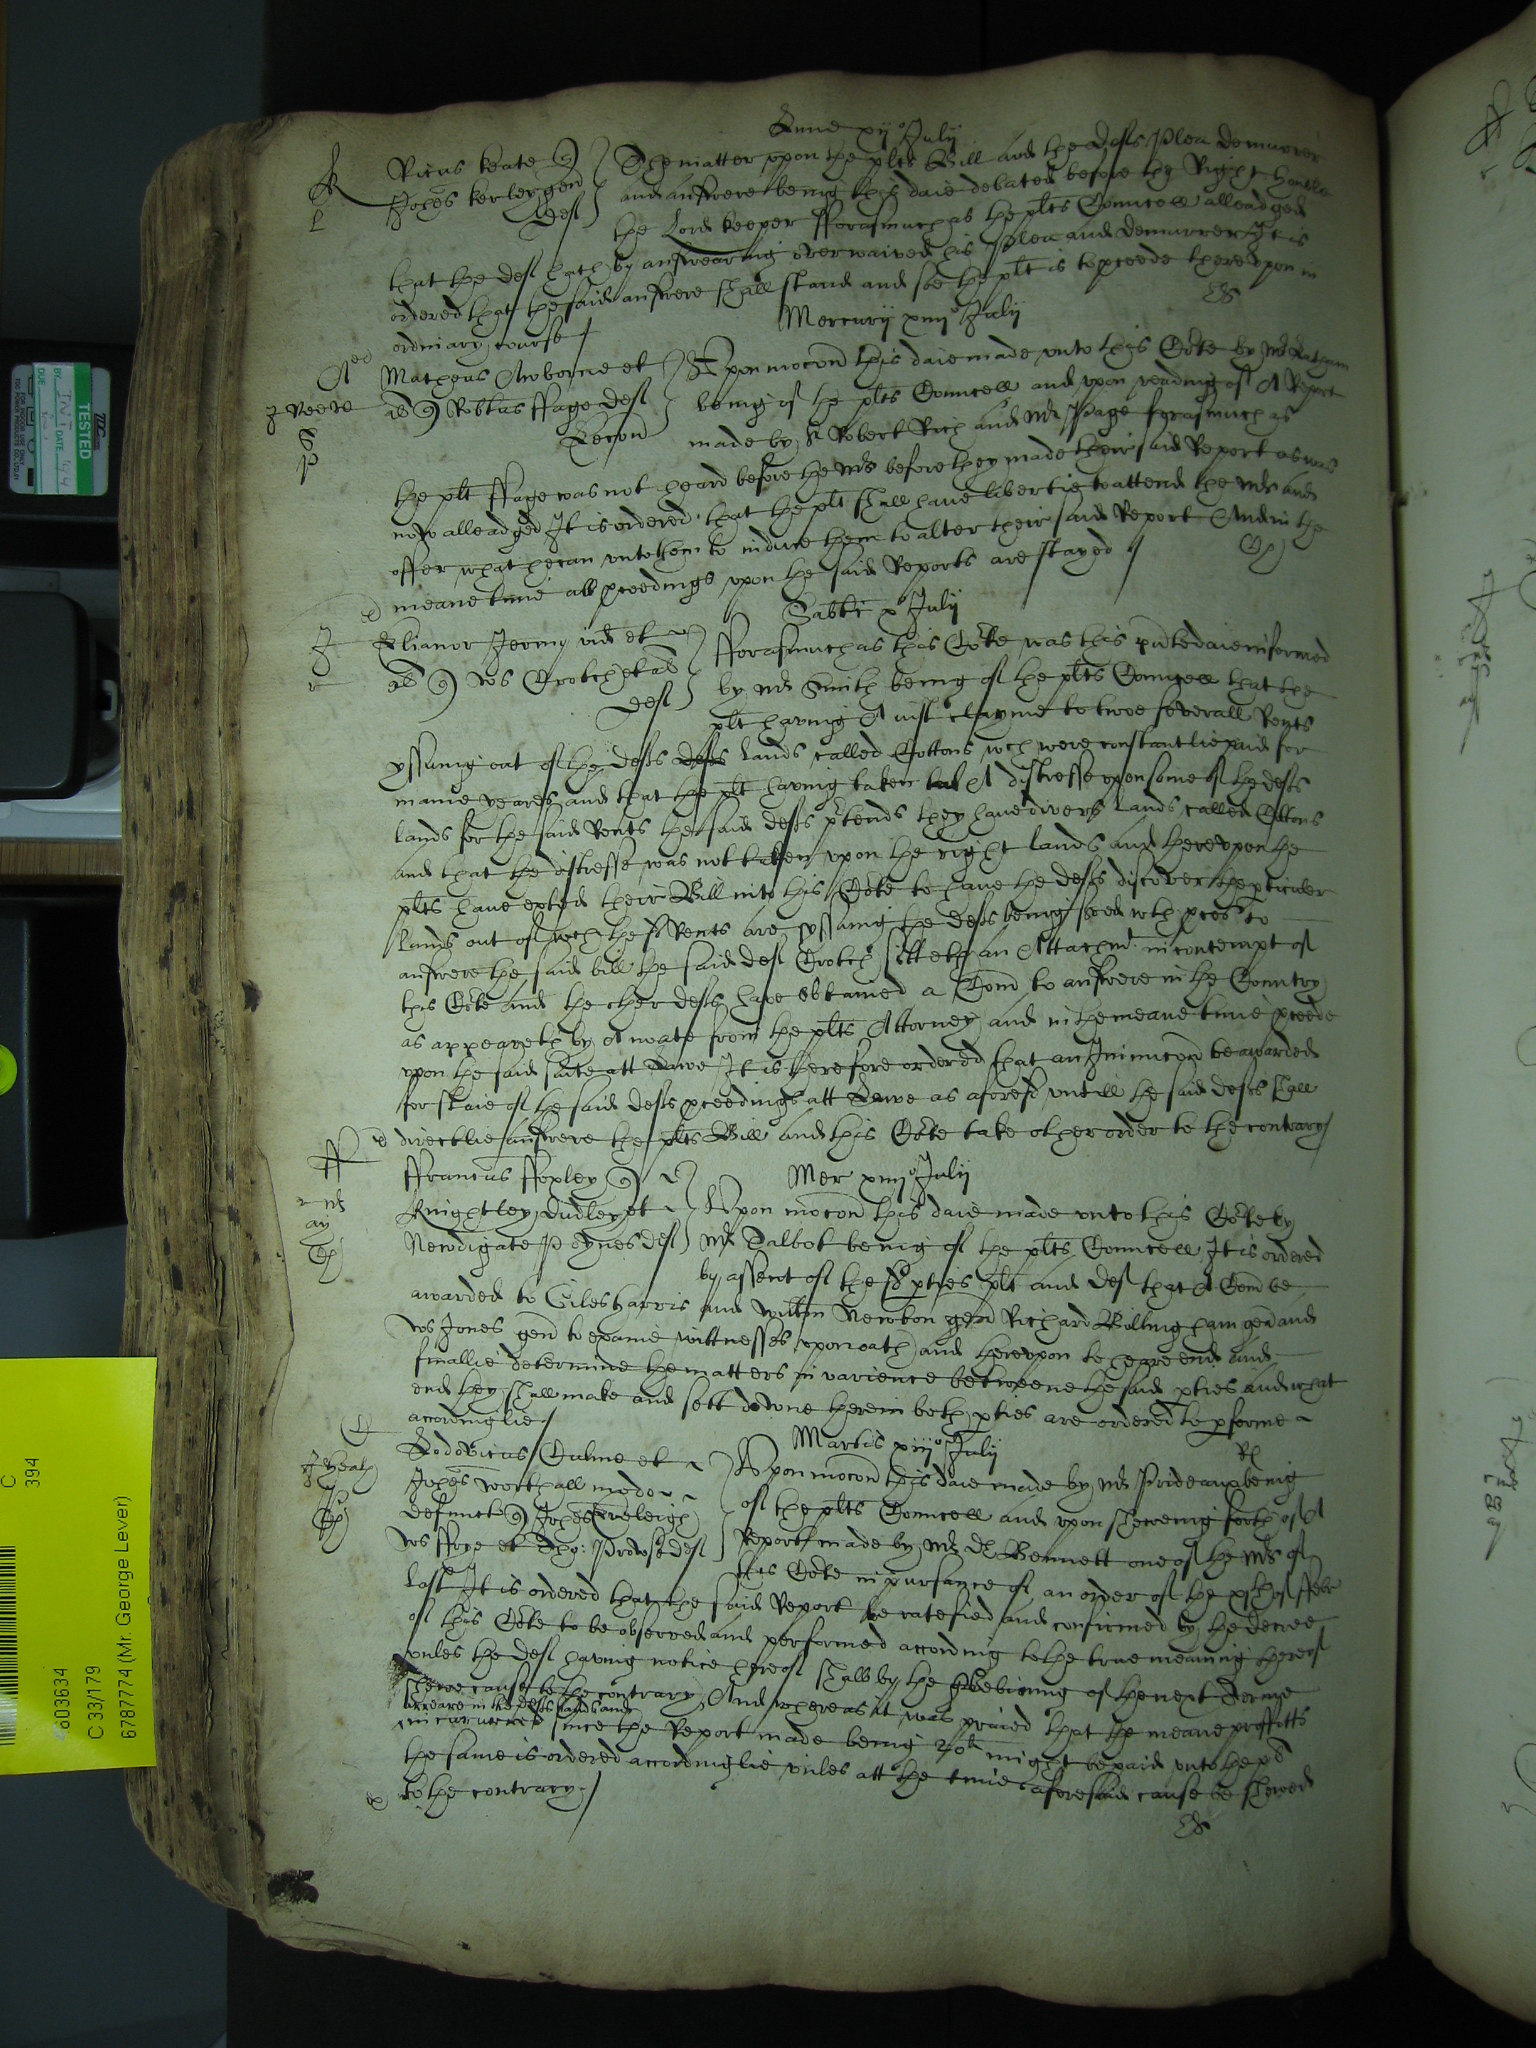 Lune xij° Julij
Ricus Keate
Johes Kerley gen
deft
The matter upon the plts Bill and the defts plea demurrer
and answere being this daie debated before the Right honble
the Lord keeper fforasmuch as the plts Councell alleadged
that the deft hath by answearing over waived his plea and demurrer It is
ordered that the said answere shall stand and soe the plt is to pceede thereupon in
ordinary course
Mercurij xiiij° Julij
J Neeve
Matheus et
al Robtus ffage deft
Upon mocon this daie made unto this Corte by Mr
being of the plts Councell and upon reading of A Report
made by Sr Robert Rich and Mr Page forasmuch as
the plt ffage was not heard before the Mrs before they made their said Report as was
now alleadged It is ordered that the plt shall have libertie to attend the Mrs and
offer what he can unto them to induce them to alter their said Report And in the
meane time all pceedings upon the said Reports are stayed
Sabbti x° Julij
Elianor Jermy vid et
al Ws Crotch et al
deft
fforasmuch as this Corte was this pnte daie informed
by Mr Smith being of the plts Councell that the
plt having A just clayme to twoe severall Rents
yssuing out of the defts lands called Cottons wch were constantlie paid for
manie yeares and that the plt having taken A distresse upon some of the defts
lands for the said Rents the said defts ptends they have divers lands called Cottons
and that the distresse was not taken upon the right lands and thereupon the
plts have exhibited their Bill into this Corte to have the defts discover the pticuler
lands out of wch the sd Rents are yssuing the defts being served wth pces to
answere the said bill the said deft Crotch sitteth an Attachmt in contempt of
this Corte and the other defts have obtained a Comn to answere in the Countrey
as appeareth by A noate from the plts Attorney and in the meane time pceede
upon the said suite att Lawe It is therefore ordered that an Iniuncon be awarded
for staie of the said defts pceedings att Lawe as aforesd untill the said defts shall
directlie answere the plts Bill and this Corte take other order to the contrary
Mer xiiij° Julij
ffrancus ffoxley
Knightley Dudley et
Newdigate Poynes deft
Upon mocon this daie made unto this Corte by
Mr Talbot being of the plts Councell It is ordered
by assent of the sd pties plt and deft that A Comn be
awarded to Giles Harris and Willm Newton gen Richard Billingham gen and
Ws Jones gen to examine wittnesses upon oath and thereupon to heare end and
finallie determine the matters in varience betweene the said pties and what
end they shall make and sett downe therein both pties are ordered to pforme
accordinglie
Martis xiij° Julij
J Heath
Lodovicus Culme et
Johes Worthall modo
defunct Johes
Ws ffrye et Tho: Prowse deft
Upon mocon this daie made by Mr Prideaux being
of the plts Councell and upon shewing forth of A
Report made by Mr Dr Bennett one of the Mrs of
this Corte in pursance of an order of the of ffebr
last It is ordered that the said Report be ratefied and confirmed by the decree
of this Corte to be observed and performed according to the true meaning thereof
unles the deft having notice hereof shall by the beginning of the next Terme
shewe cause to the contrary And whereas it was praied that the meane proffitts
arreare in the defts hands and
incurred since the Report made being 20li might be paid unto the plt
the same is ordered accordinglie unles att the time aforesaid cause be shewed
to the contrary
TESTED
BY
DATE
DUE
C
394
603634
C 33/179
6787774 (Mr. George Lever)